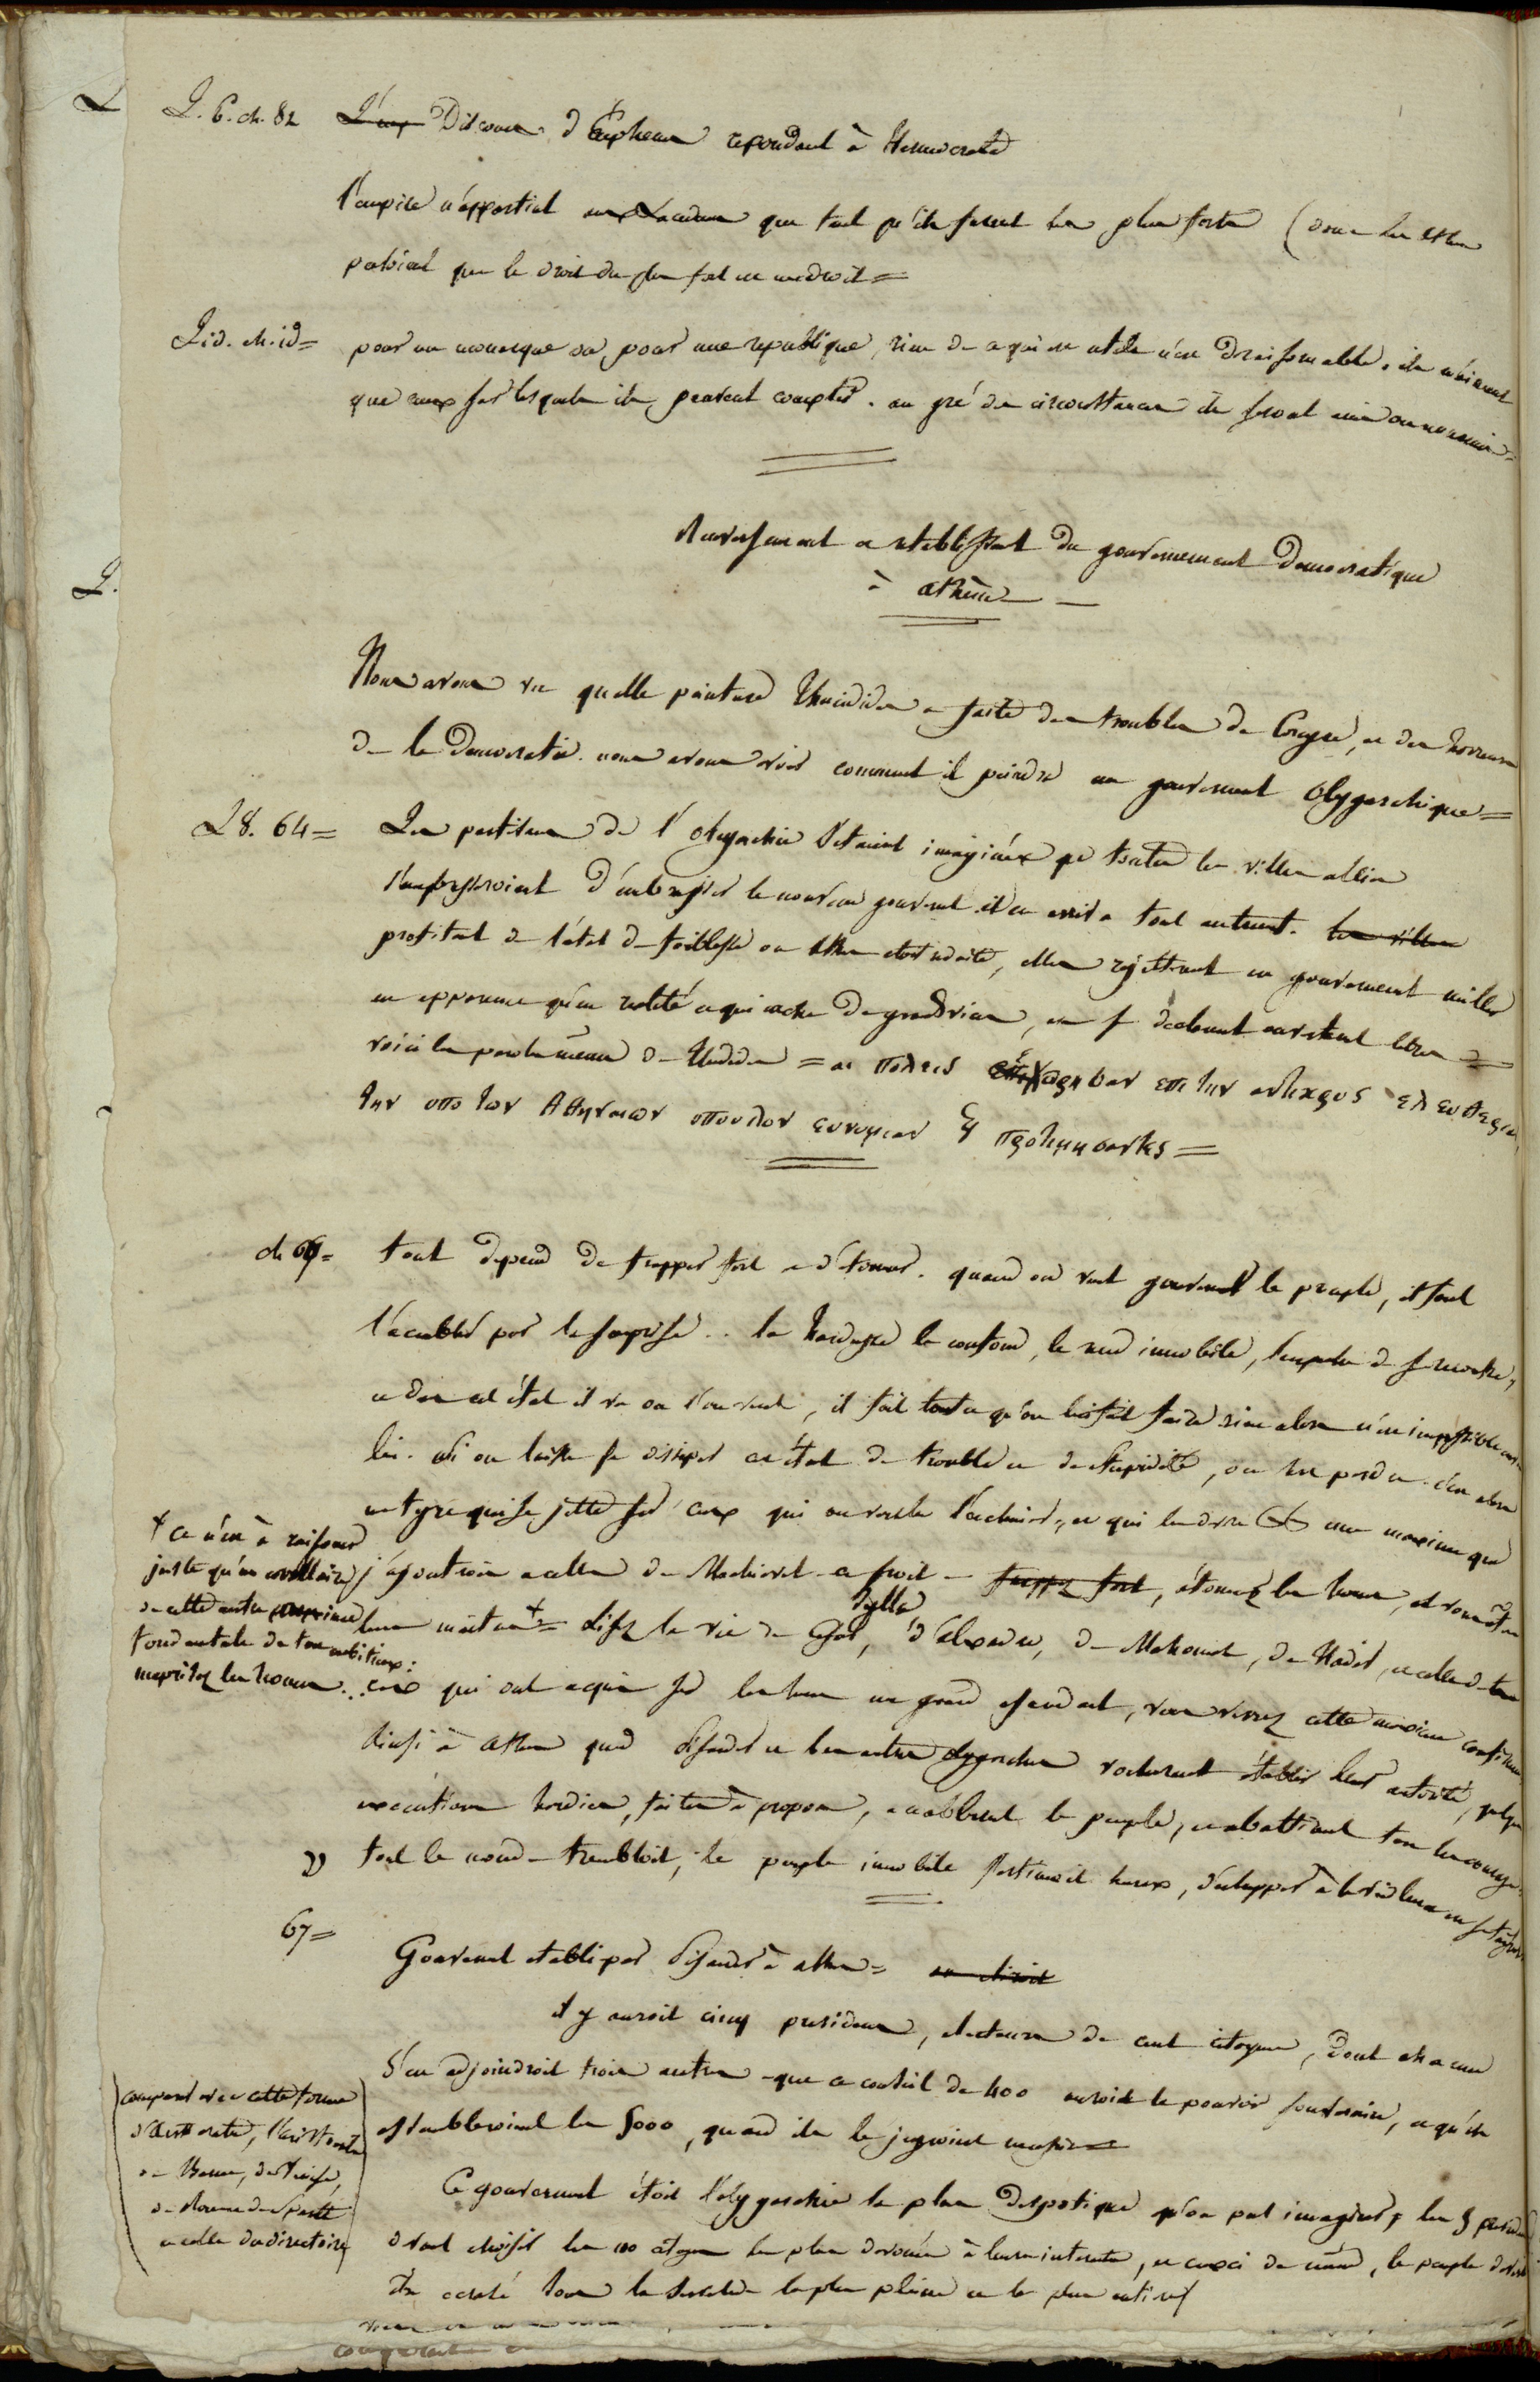 L. 6. ch. 82 Discours d'Eupheme repondant à Hermocrate
l'empire n'appartint que tant qu'ils furent les plus forts (donc les Ath.
pensoient que le droit du plus fort est un droit =
L. id. ch. id = pour un monarque ou pour une republique, rien de ce qui est utile n'est deraisonnable. ils n'aiment
que ceux sur lesquels ils peuvent compter. au gré des circonstances ils seront amis ou ennemis =
Renversement et retablissement du gouvernement democratique
à athènes —
Nous avons vu quelle peinture Thucidides a faite des troubles de Corcyre, et des horreurs
de la democratie. nous allons voir comment il peindra un gouvernement olygarchique =
L 8. 64 = Les partisans de l'olygarchie s'etoient imaginés que toutes les villes alliées
s'empresseroient d'embrasser le nouveau gouvernement. il en arriva tout autrement. les villes
profitant de l'état de foiblesse ou Athenes etoit reduite, elles rejetterent un gouvernement meilleur
en apparence qu'en realité et qui cache de grands vices, et se declarerent ouvertement libres =
voici les paroles memes de Thucidides = αι πολεις εχωρησαν επι την αντικρυς ελευθερια
την υπο των Αθηναιων υπουλον ευνομιαν ȣ προτιμησαντες =
ch 66 = tout depend de frapper fort et d'étonner. quand on veut gouverner le peuple, il faut
l'accabler par la surprise .. la hardiesse le confond, le rend immobile, l'empeche de se reconnoitre,
et dans cet état il va ou l'on veut, il fait tout ce qu'on lui fait faire. rien alors n'est impossible avec
lui. si on laisse se dissiper cet état de trouble et de stupidité, on est perdu. c'est alors
un tygre qui se jette sur ceux qui ont voulu l'enchainer, et qui les devore une maxime que
j'ajouterois a celles de Machiavel - frappez fort, étonnez les hommes, et vous etes
leur maitre + = Lisez la vie de Cesar, Sylla, d'alexandre, de Mahomet, de Nadir, et celle de tous
ceux qui ont acquis sur les hommes un grand ascendant, vous verrez cette maxime confirmée
Ainsi à Athenes quand Pisander et les autres olygarches voulurent établir leur autorité, quelques
executions hardies, faites à propos, accablerent le peuple, et abattirent tous les courages.
tout le monde trembloit, le peuple immobile s'estimoit heureux, d'echapper à la violence en se taisant
+ ce n'est à raisonner
juste qu'un corollaire
de cette autre maxime
fondamentale de tous ambitieux :
meprisez les hommes ...
67 = Gouvernement etabli par Pisander à athenes =
il y auroit cinq presidens, electeurs de cent citoyens, dont chacun
s'en adjoindroit trois autres - que ce conseil de 400 auroit le pouvoir souverain, et qu'ils
assembleroient les 5000, quand ils le jugeroient
Ce gouvernement étoit l'olygarchie la plus despotique qu'on put imaginer, les 5 presidens
devant choisir les 100 citoyens les plus devoués à leurs interets, et ceux ci de même, le peuple devoit
être sous la servitude la plus pleine et la plus entiere
comparez avec cette forme
d'Aristocratie, l'aristocratie
de Berne, de Venise,
de Rome de Sparte
et celle du directoire